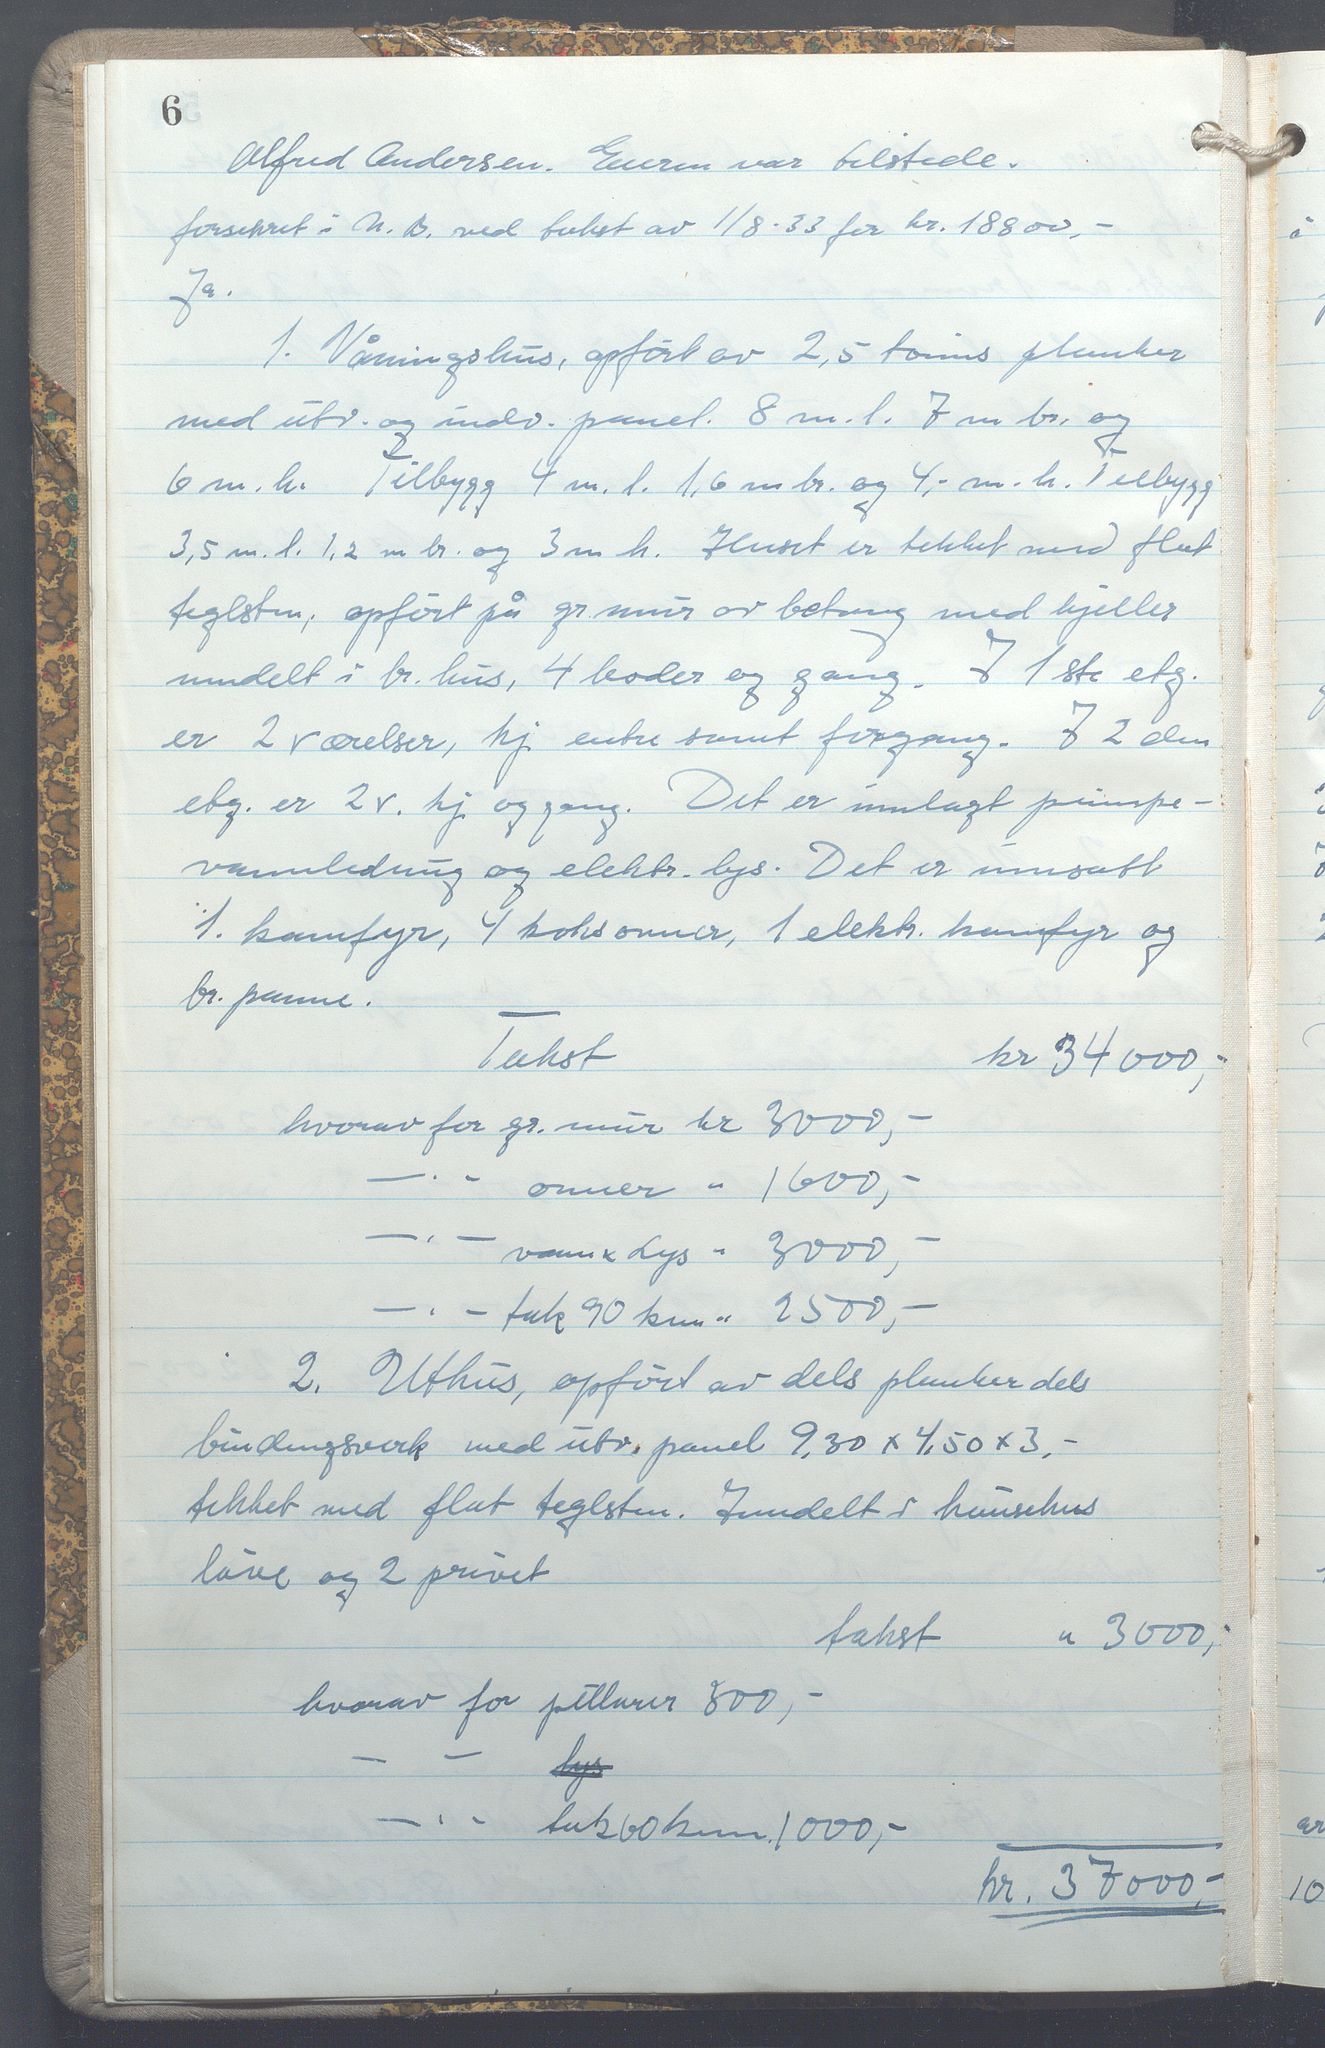 6
Alfred Andersen. Eieren var tilstede.
forsikret i N. B. ved takst av 1/8-33 for kr. 18800,-
Ja.
1. Våningshus, opført av 2,5 toms planker
med utv. og indv. panel. 8 m. l. 7 m br. og
6 m. h. Tilbygg 4 m. l. 1,6 m br. og 4,- m. h. Tilbygg
3,5 m. l. 1,2 m br. og 3 m h. Huset er tekket med flat
teglsten, opført på gr. mur av betong med kjeller
inndelt i br. hus, 4 boder og gang. I 1ste etg.
er 2 værelser, kj. entre samt forgang. I 2den
etg. er 2 v. kj. og gang. Det er innlagt pumpe-
vannledning og elektr. lys. Det er innsatt
1. komfyr, 4 koksovner, 1 elektr. komfyr og
br. panne.
Takst kr 34000,-
hvorav for gr. mur kr 3000,-
— . - ovner " 1600,-
— . — vann & Lys " 3000,-
— . - tak 90 kvm " 2500,-
2. Uthus, opført av dels planker dels
bindingsverk med utv. panel 9,30 x 4,50 x 3,-
tekket med flat teglsten. Inndelt i hønsehus
løve og 2 privet
takst " 3000,-
hvorav for pillarer 300,-
— — lys
— . - tak 60 kvm. 1000,-
kr. 37000,-